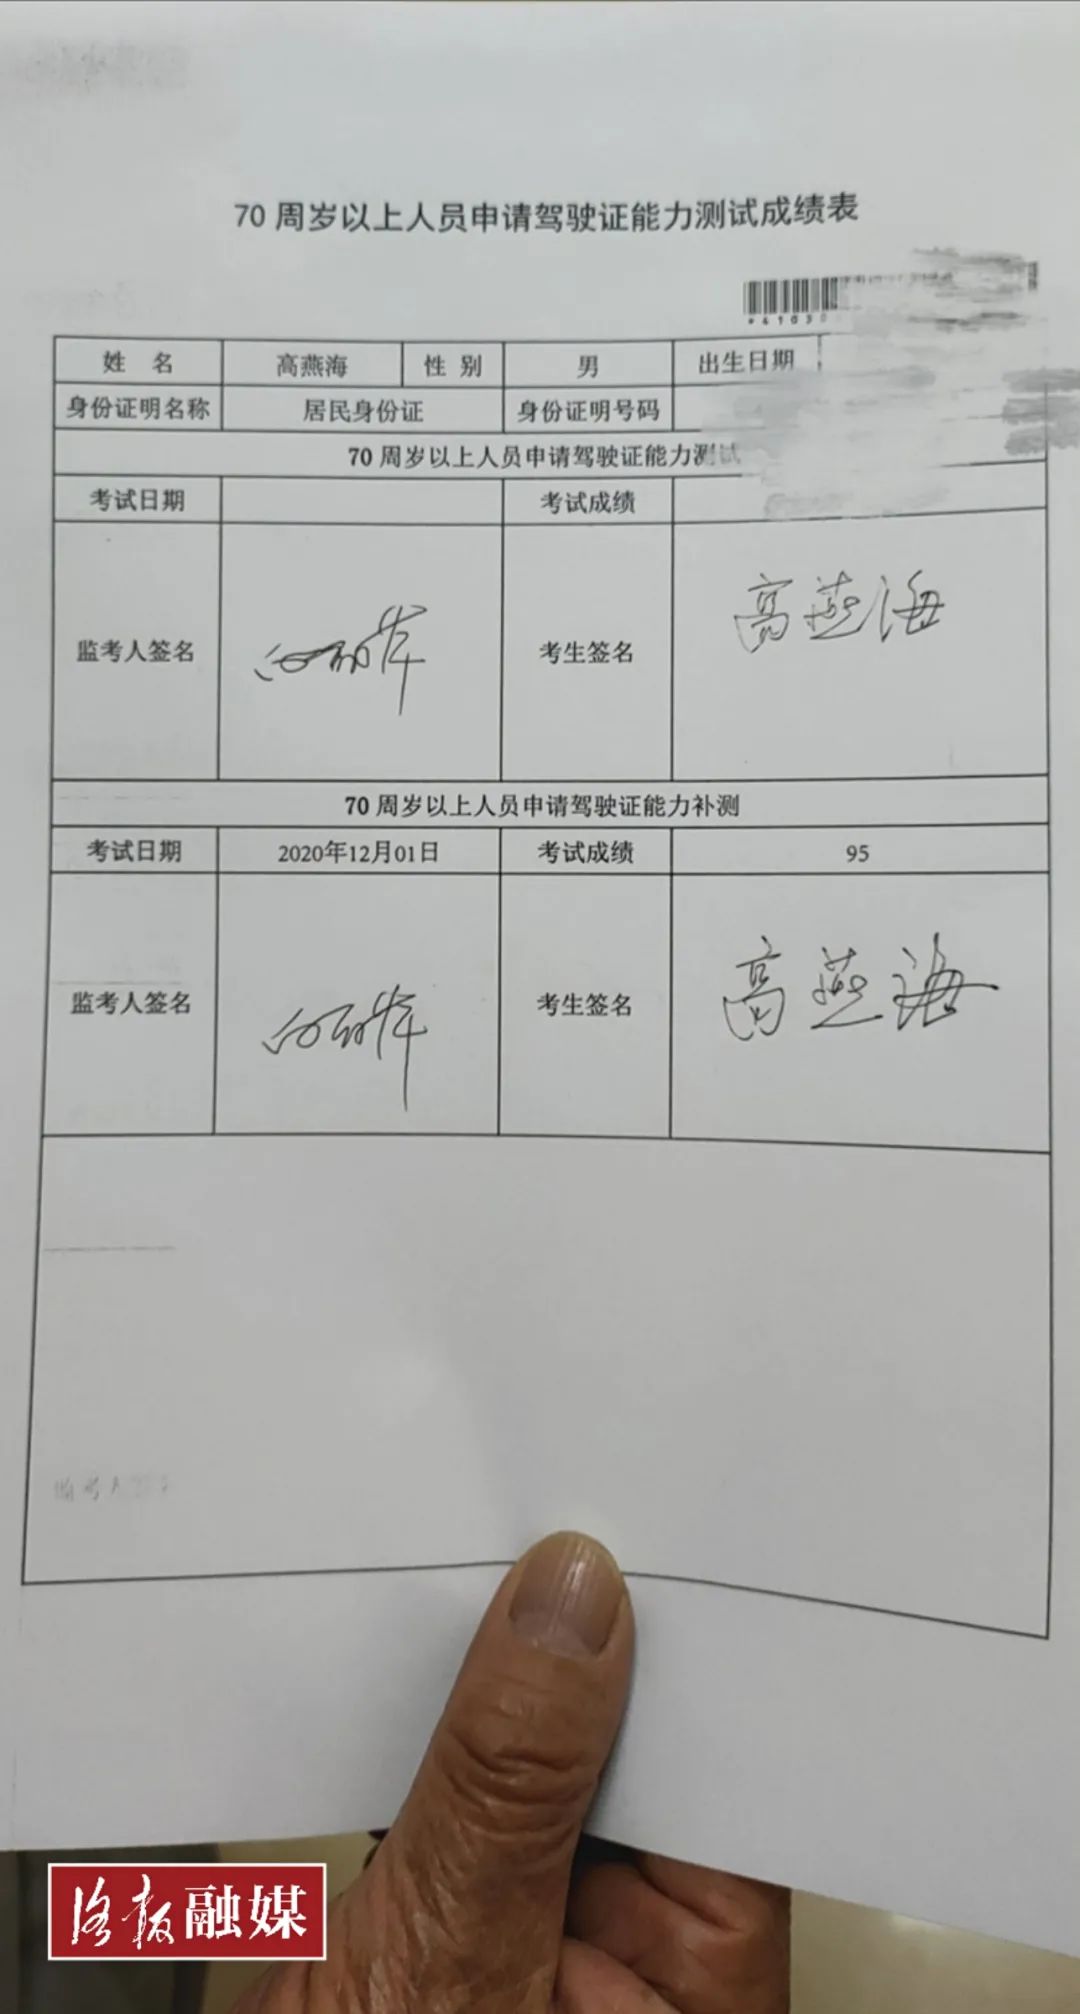 70周岁以上人员申请驾驶证能力测试成绩表
*41030
姓 名 高燕海 性 别 男 出生日期
身份证明名称 居民身份证 身份证明号码
70周岁以上人员申请驾驶证能力测试
考试日期 考试成绩
监考人签名 考生签名 高燕海
70周岁以上人员申请驾驶证能力补测
考试日期 2020年12月01日 考试成绩 95
监考人签名 考生签名 高燕海
洛报融媒